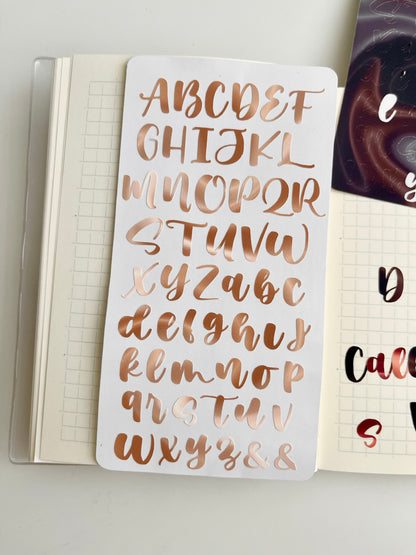 ABCDEF
GHIJKL
MNOPQR
STUVW
XYZabc
defghij
klmnop
qrstuv
wxyz&&
e
y
D
Call
s